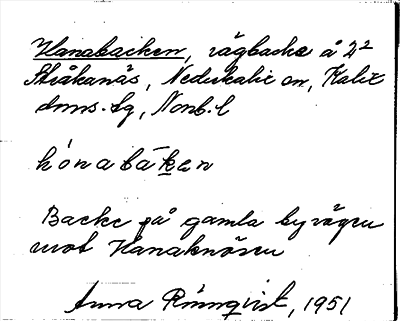 Hanabacken, vägbacke å 2²
Stråkanäs, Nederkalix sn, Kalix
dms. tg, Norrb. l
hónabáken
Backe på gamla byvägen
mot Hanaknösen
Anna Rönnqvist, 1951